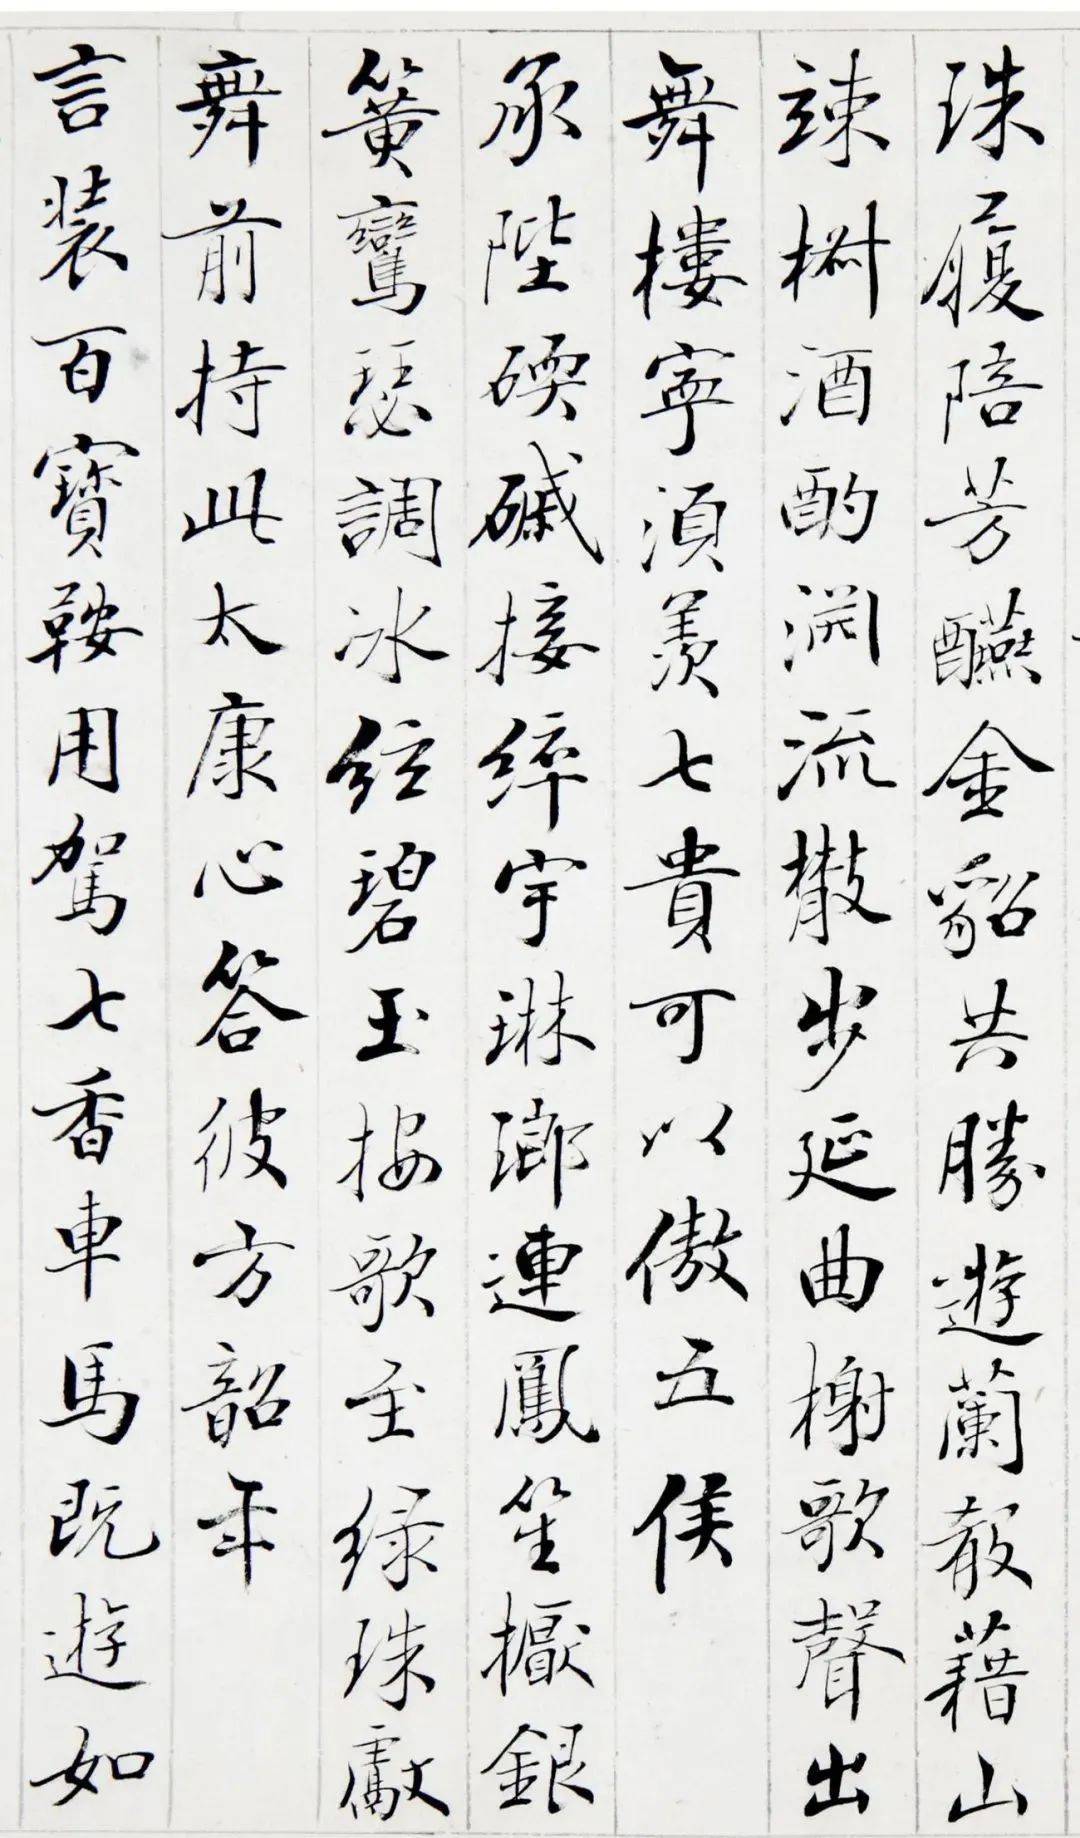 珠履陪芳醼金貂共勝遊蘭殽藉山
竦桝酒酌淵流撒步延曲榭歌聲出
舞樓寧須羨七貴可以傲五侯
承陛碝磩接綷宇琳瑯連鳳笙擫銀
簧鸞瑟調冰絃碧玉按歌至綠珠獻
舞前持此太康心答彼方韶年
言装百寶鞍用駕七香車馬既遊如